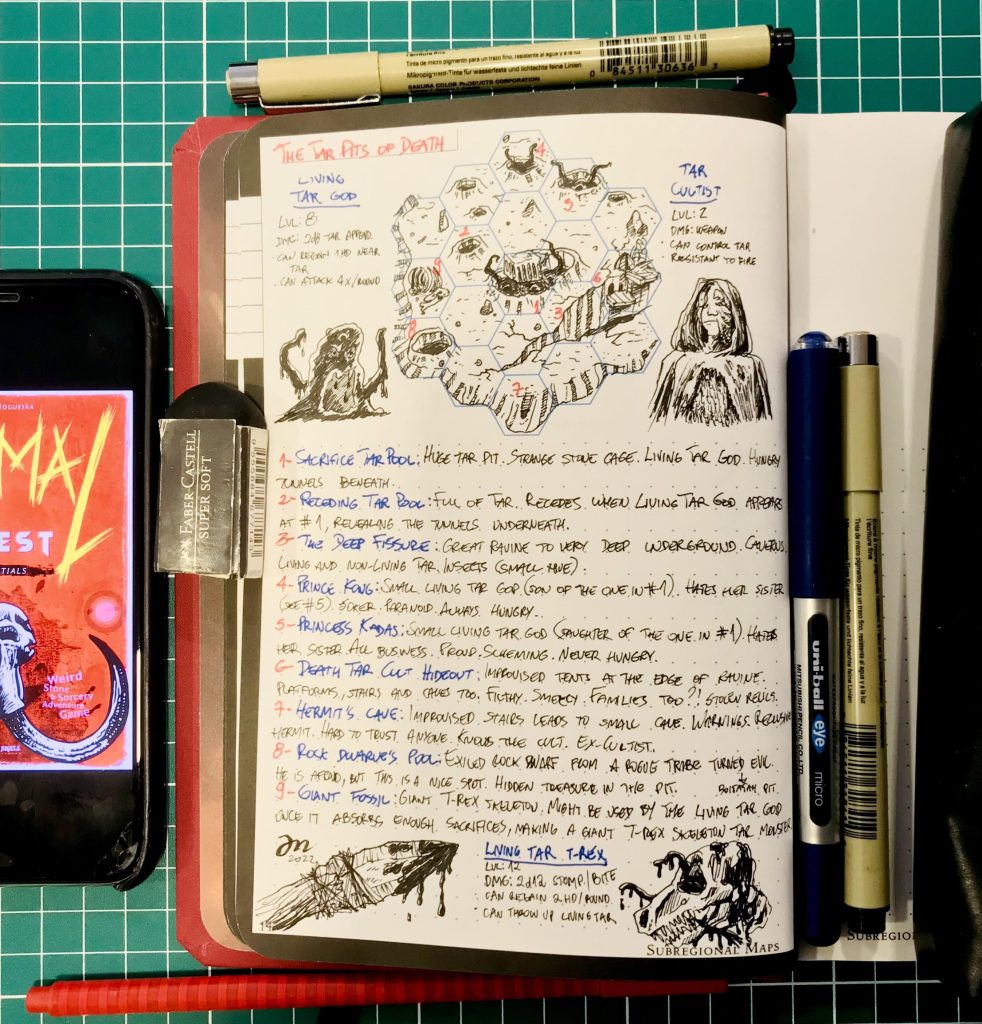 l'écriture fine
Tinta de micro pigmento para un trazo fino, resistente al agua y a la luz
Mikropigment-Tinte für wasserfeste und lichtechte feine Linien
SAKURA COLOR PRODUCTS CORPORATION
0 84511 30636 3
THE TAR PITS OF DEATH
LIVING
TAR GOD
LVL: 8
DMG: 2d8 TAR APPEND.
CAN REGAIN 1HD NEAR
TAR
. CAN ATTACK 4X/ROUND
TAR
CULTIST
LVL: 2
DMG: WEAPON
• CAN CONTROL TAR
• RESISTANT TO FIRE
4
5
2
9
6
1
3
8
7
1- SACRIFICE TAR POOL: HUGE TAR PIT. STRANGE STONE CAGE. LIVING TAR GOD. HUNGRY
TUNNELS BENEATH.
2- RECEDING TAR POOL: FULL OF TAR. RECEDES WHEN LIVING TAR GOD APPEARS
AT #1, REVEALING THE TUNNELS UNDERNEATH.
3- THE DEEP FISSURE: GREAT RAVINE TO VERY DEEP UNDERGROUND. CAVERNS.
LIVING AND NON-LIVING TAR. INSECTS (SMALL HIVE).
4- PRINCE KONG: SMALL LIVING TAR GOD (SON OF THE ONE IN #1). HATES HER SISTER
(SEE #5). JOKER. PARANOID. ALWAYS HUNGRY.
5- PRINCESS KADAS: SMALL LIVING TAR GOD (DAUGHTER OF THE ONE IN #1). HATES
HER SISTER. ALL BUSINESS. PROUD, SCHEMING. NEVER HUNGRY.
6- DEATH TAR CULT HIDEOUT: IMPROVISED TENTS AT THE EDGE OF RAVINE.
PLATFORMS, STAIRS AND CAVES TOO. FILTHY. SMELLY. FAMILIES TOO?! STOLEN RELICS.
7- HERMIT'S CAVE: IMPROVISED STAIRS LEADS TO SMALL CAVE. WARNINGS. RECLUSIVE
HERMIT. HARD TO TRUST ANYONE. KNOWS THE CULT. EX-CULTIST.
8- ROCK DWARVE'S POOL: EXILED ROCK DWARF FROM A ROGUE TRIBE TURNED EVIL.
HE IS AFRAID, BUT THIS IS A NICE SPOT. HIDDEN TREASURE IN THE PIT.
PIT.
9- GIANT FOSSIL: GIANT T-REX SKELETON. MIGHT BE USED BY THE LIVING TAR GOD
ONCE IT ABSORBS ENOUGH SACRIFICES, MAKING A GIANT T-REX SKELETON TAR MONSTER
2022
LIVING TAR T-REX
LVL: 12
DMG: 2d12 STOMP/BITE
• CAN REGAIN 2HD/ROUND.
• CAN THROW UP LIVING TAR
14
SUBREGIONAL MAPS
SUBREGIONAL
FABER-CASTELL
SUPER SOFT
NOGUEIRA
MAL
EST
TIALS
Weird
Stone
& Sorcery
Adventure
Game
SKULL
uni-ball eye micro
MITSUBISHI PENCIL CO., LTD
l'écriture fine
Tinta de micro pigmento para un trazo fino, resistente al agua y a la luz